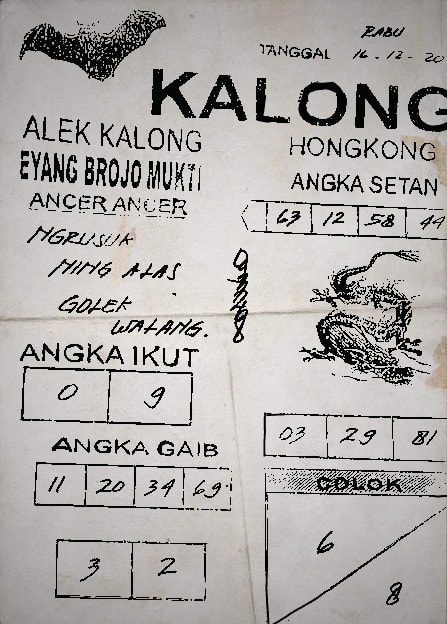 RABU
TANGGAL 16-12-20
KALONG
ALEK KALONG
EYANG BROJO MUKTI
ANCER ANCER
NGRUSUK
MING ALAS
GOLEK
WALANG.
HONGKONG
ANGKA SETAN
63 12 58 44
ANGKA IKUT
0 9
ANGKA GAIB
11 20 34 69
3 2
03 29 81
COLOK
6
8